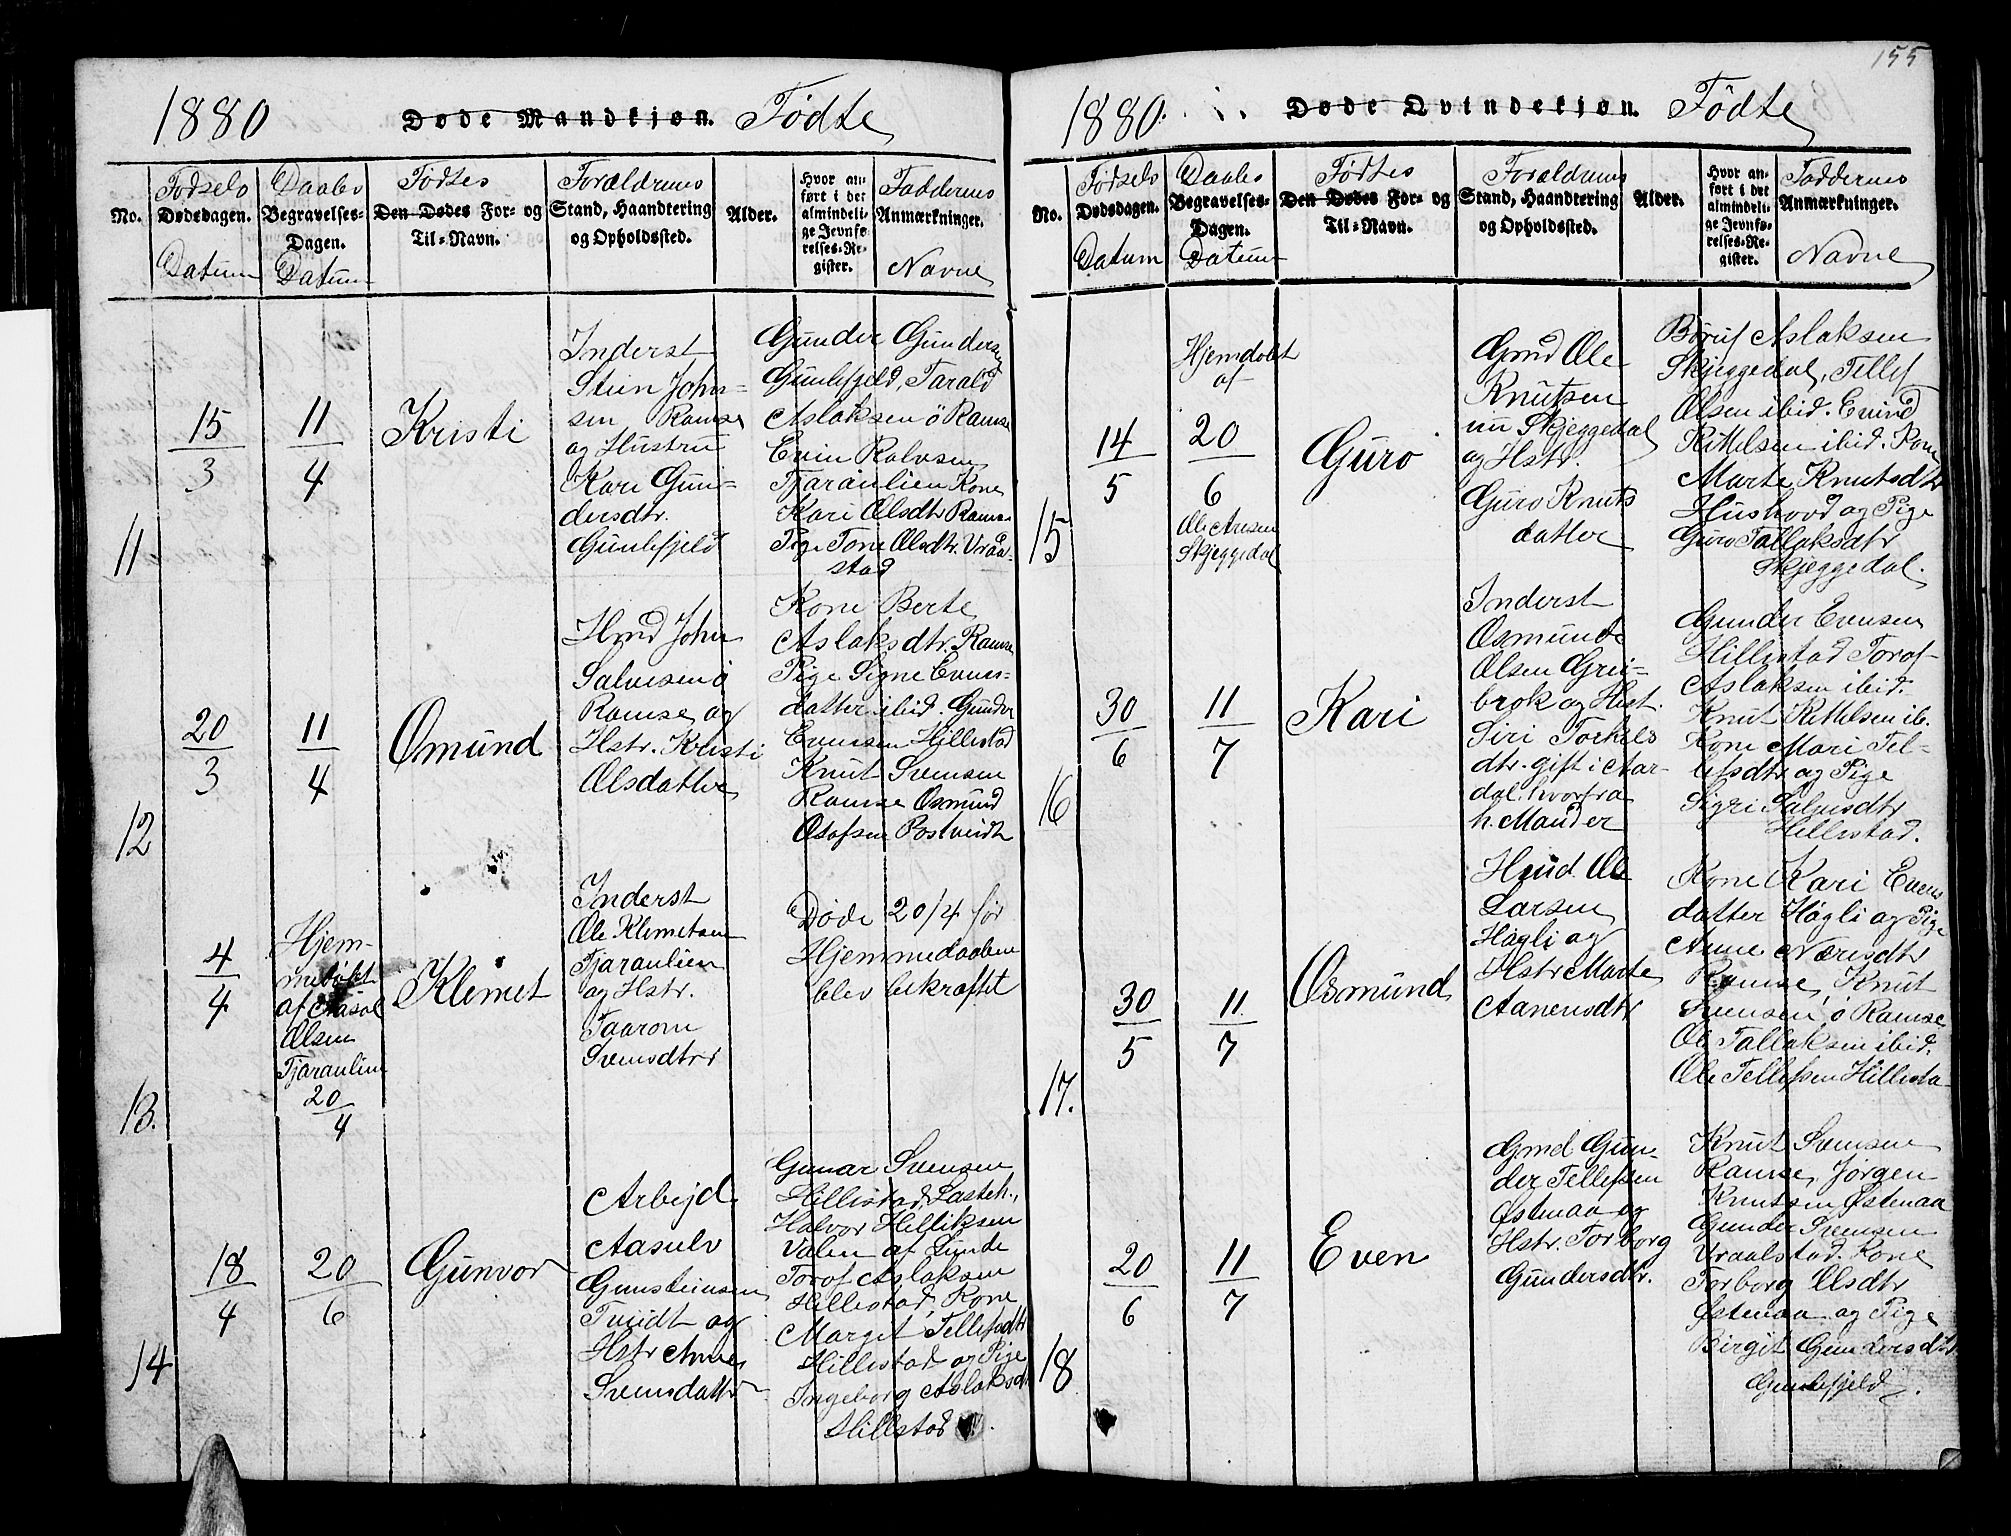 1880 Døde Mandkjøn. Fødte
No.
Fødsels Dødsdagen. Datum
Daabs Begravelses-Dagen. Datum
Fødtes Den Dødes For- og Til-Navn.
Forældrenes Stand, Haandtering og Opholdssted.
Alder.
Hvor anført i det almindelige Jevnførelses-Register.
Faddernes Anmærkninger. Navne
11
15/3
11/4
Kristi
Inderst
Stien John-
sen Ramse
og Hustru
Kari Gun-
dersdtr.
Gunlefjeld
Gunder Gundersen
Gunlefjeld, Tarald
Aslaksen ö Ramse
Even Rolvsen
Tjaraulien Kone
Kari Olsdtr Ramse
Pige Tone Olsdtr. Vraa-
stad
12
20/3
11/4
Osmund
Hmd John
Salvesen ö
Ramse og
Hstr. Kristi
Olsdatter
Kone Berte
Aslaksdtr. Ramse
Pige Signe Evens-
datter ibid. Gunder
Evensen Hillestad
Knut Svensen
Ramse Osmund
Olofsen Postveidt
13.
4/4
Hjem-
medøbt
af Aasul
Olsen
Tjaraulien
20/4
Klemet
Inderst
Ole Klemetsen
Tjaraulien
og Hstr.
Taarom
Svensdttr
Døde 20/4 før
Hjemmedaaben
blev bekræftet
14
18/4
20/6
Gunvor
Arbejd.
Aasulv
Gunsteinsen
Tveidt og
Hstr Anne
Svensdattr
Gunar Svensen
Hillestad, Lasteh.,
Halvor Helliksen
Valen af Lunde
Torof Aslaksen
Hillestad, Kone
Margit Tellefsdtr
Hillestad og Pige
Ingeborg Aslaksdt
Hillstad
155
1880. Døde Qvindekjøn. Fødte
No.
Fødsels Dødsdagen. Datum
Daabs Begravelses-Dagen. Datum
Fødtes Den Dødes For- og Til-Navn.
Forældrenes Stand, Haandtering og Opholdssted.
Alder.
Hvor anført i det almindelige Jevnførelses-Register.
Faddernes Anmærkninger. Navne
15
14/5
Hjemdøbt
af
20/6
Ole Aresen
Skjeggedal
Guro
Gmd Ole
Knutsen
Skjeggedal
og Hstr.
Guro Knuts
datter
Børuf Aslaksen
Skjeggedal, Tellef
Olsen ibid. Evind
Kittelsen ibid. Kone
Marte Knutsdtr
Hushovd og Pige
Guro Tallaksdtr
Skjeggedal.
16
30/6
11/7
Kari
Inderst
Osmund
Olsen Grei-
brok og Hst.
Siri Torkels
dtr. gift i Aar-
dal. hvorfra
h. Mand er
Gunder Evensen
Hillestad Torof
Aslaksen ibid.
Knut Kittelsen ib.
Kone Mari Tel-
lefsdtr og Pige
Sigri Salvesdtr
Hillestad.
17.
30/5
11/7
Osmund
Hmd. Ole
Larsen
Högli og
Hstr Marte
Aanensdtr
Kone Kari Evens
datter Högli og Pige
Anne Næridtr
Ramse, Knut
Svensen ö Ramse
Ole Tallaksen ibid.
Ole Tellefsen Hillesta
18
20/6
11/7
Even
Gmd Gun-
der Tellefsen
Østenaa og
Hstr. Torborg
Gundersdtr.
Knut Svensen
Ramse, Jørgen
Knutsen Østenaa
Gunder Svensen
Vraalstad. Kone
Torborg Olsdtr
Østenaa og Pige
Birgit Gundersdtr
Gunlefjeld.